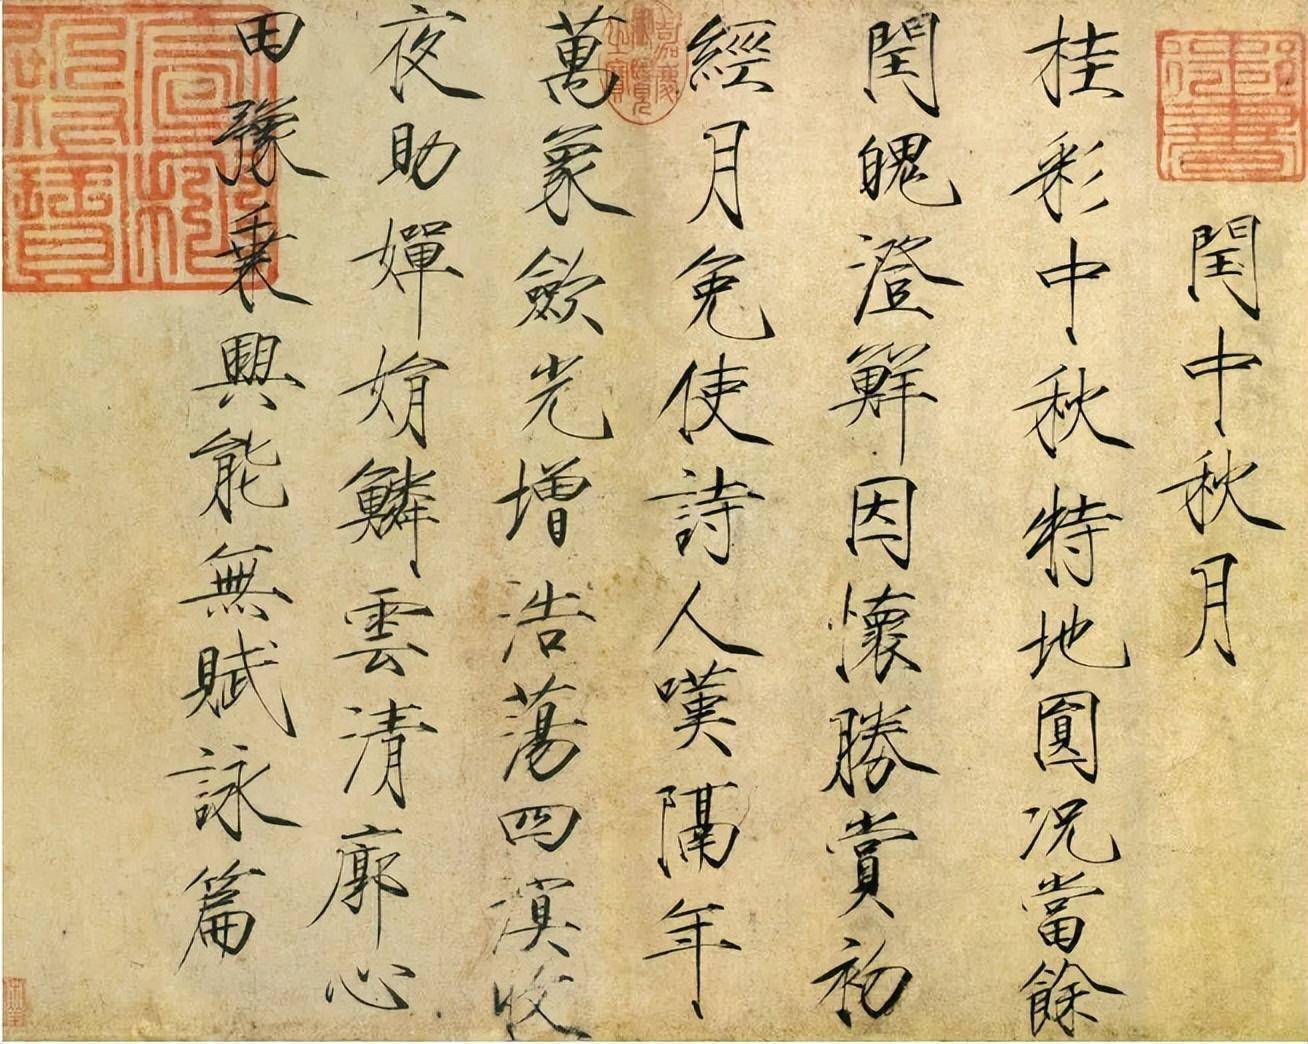 御書
閏中秋月
桂彩中秋特地圓況當餘
閏魄澄鮮因懷勝賞初
經月免使詩人嘆隔年
萬象歛光增浩蕩四溟收
夜助嬋娟鱗雲清廓心
田豫乗興能無賦詠篇
嘉慶御覽之寶